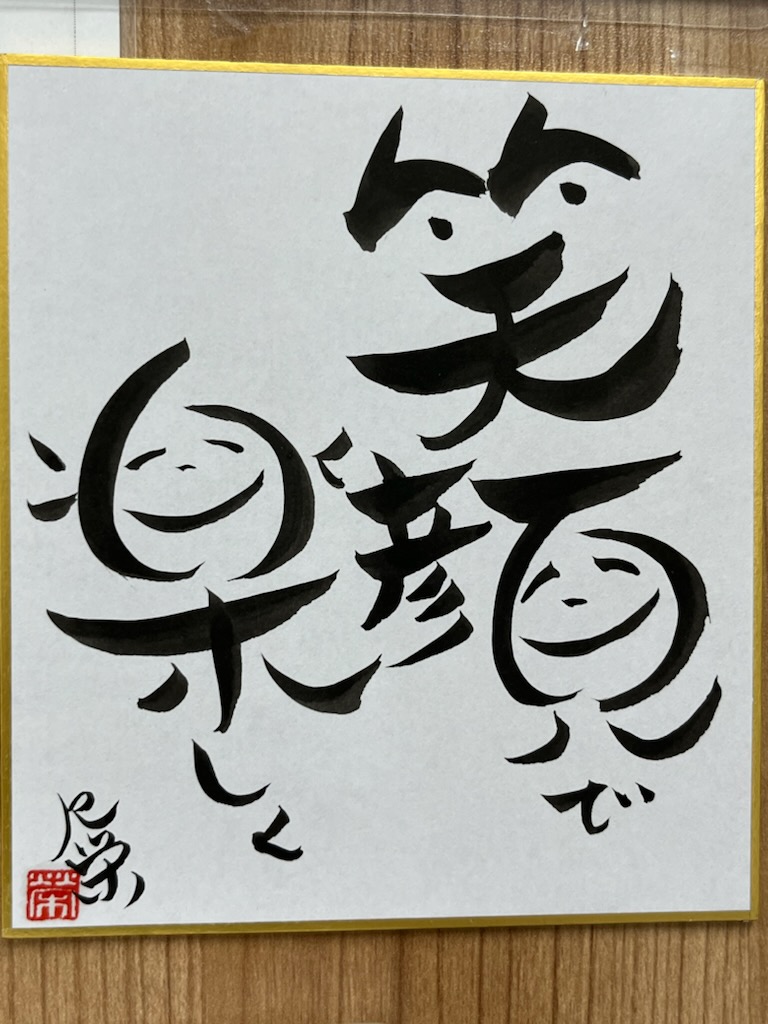 笑顔で
楽しく
栄